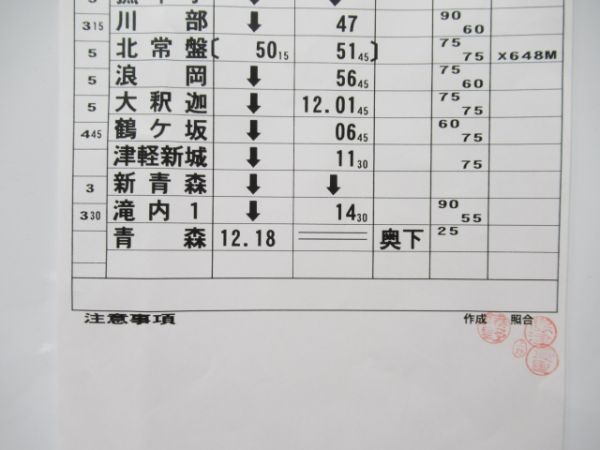 川部 ↓ 47 90 60
315
北常盤 〔 5015 5145 〕 75 75 X648M
5
浪岡 ↓ 5645 75 60
5
大釈迦 ↓ 12.0145 75 75
5
鶴ケ坂 ↓ 0645 60 75
445
津軽新城 ↓ 1130 75
新青森 ↓ ↓
3
滝内1 ↓ 1430 90 55
330
青森 12.18 奥下 25
注意事項 作成 照合